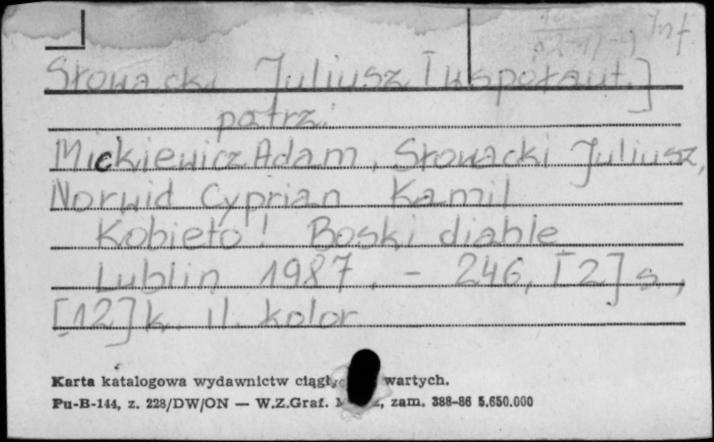 Inf
Słowacki Juliusz [współaut.]
patrz:
Mickiewicz Adam, Słowacki Juliusz,
Norwid Cyprian Kamil
Kobieto! Boski diable
Lublin 1987. - 246, [2] s.,
[12] k. il. kolor
Karta katalogowa wydawnictw wartych.
Pu-B-144, z. 228/DW/ON — W.Z.Graf. zam. 388-86 5.650.000